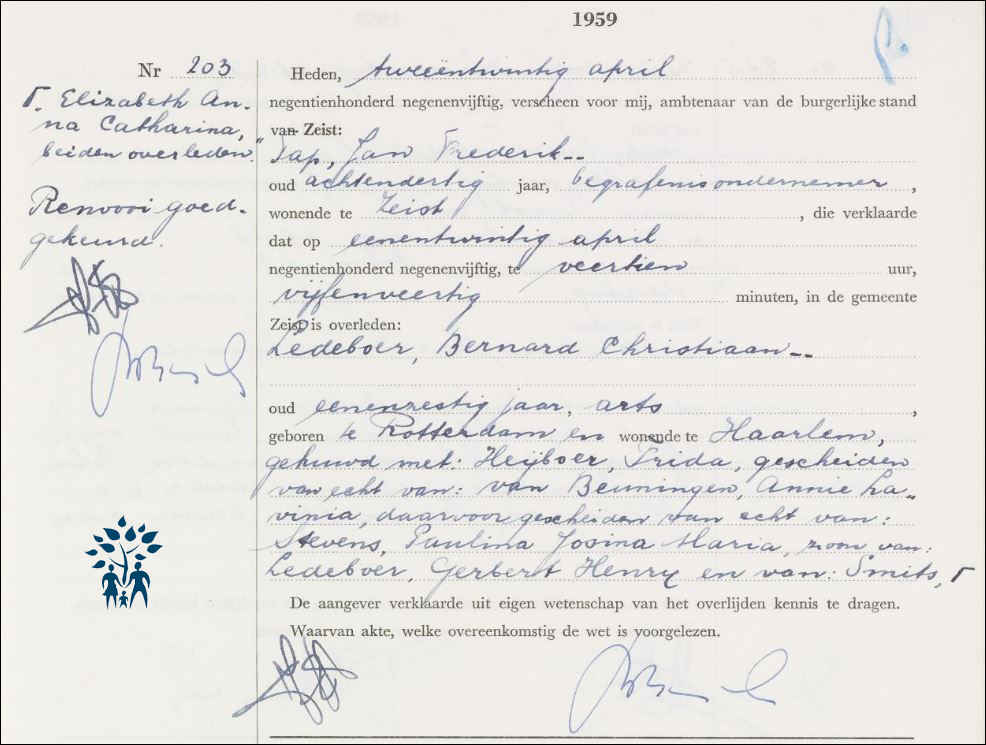 1959
Nr 203
Γ. Elizabeth An-
na Catharina,
beiden overleden."
Renvooi goed-
gekeurd.
Heden, tweeëntwintig april
negentienhonderd negenenvijftig, verscheen voor mij, ambtenaar van de burgerlijke stand
van Zeist:
Tap, Jan Frederik --
oud achtendertig jaar, begrafenisondernemer ,
wonende te Zeist , die verklaarde
dat op eenentwintig april
negentienhonderd negenenvijftig, te veertien uur,
vijfenveertig minuten, in de gemeente
Zeist is overleden:
Ledeboer, Bernard Christiaan --
oud eenenzestig jaar, arts ,
geboren te Rotterdam en wonende te Haarlem,
gehuwd met: Heijboer, Frida, gescheiden
van echt van: van Beuningen, Annie La-
vinia, daarvoor gescheiden van echt van:
Stevens, Paulina Josina Maria, zoon van:
Ledeboer, Gerbert Henry en van: Smits, Γ
De aangever verklaarde uit eigen wetenschap van het overlijden kennis te dragen.
Waarvan akte, welke overeenkomstig de wet is voorgelezen.